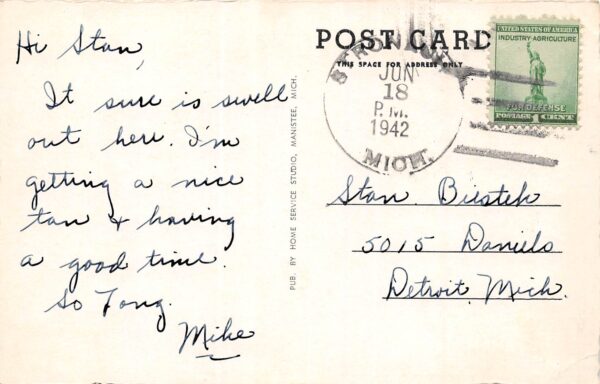 Hi Stan,
It sure is swell
out here. I'm
getting a nice
tan & having
a good time.
So Long.
Mike
PUB. BY HOME SERVICE STUDIO, MANISTEE, MICH.
POST CARD
THIS SPACE FOR ADDRESS ONLY
JUN
18
P.M.
1942
MICH.
UNITED STATES OF AMERICA
INDUSTRY-AGRICULTURE
FOR DEFENSE
POSTAGE 1 CENT
Stan. Biestek
5015 Daniels
Detroit, Mich.